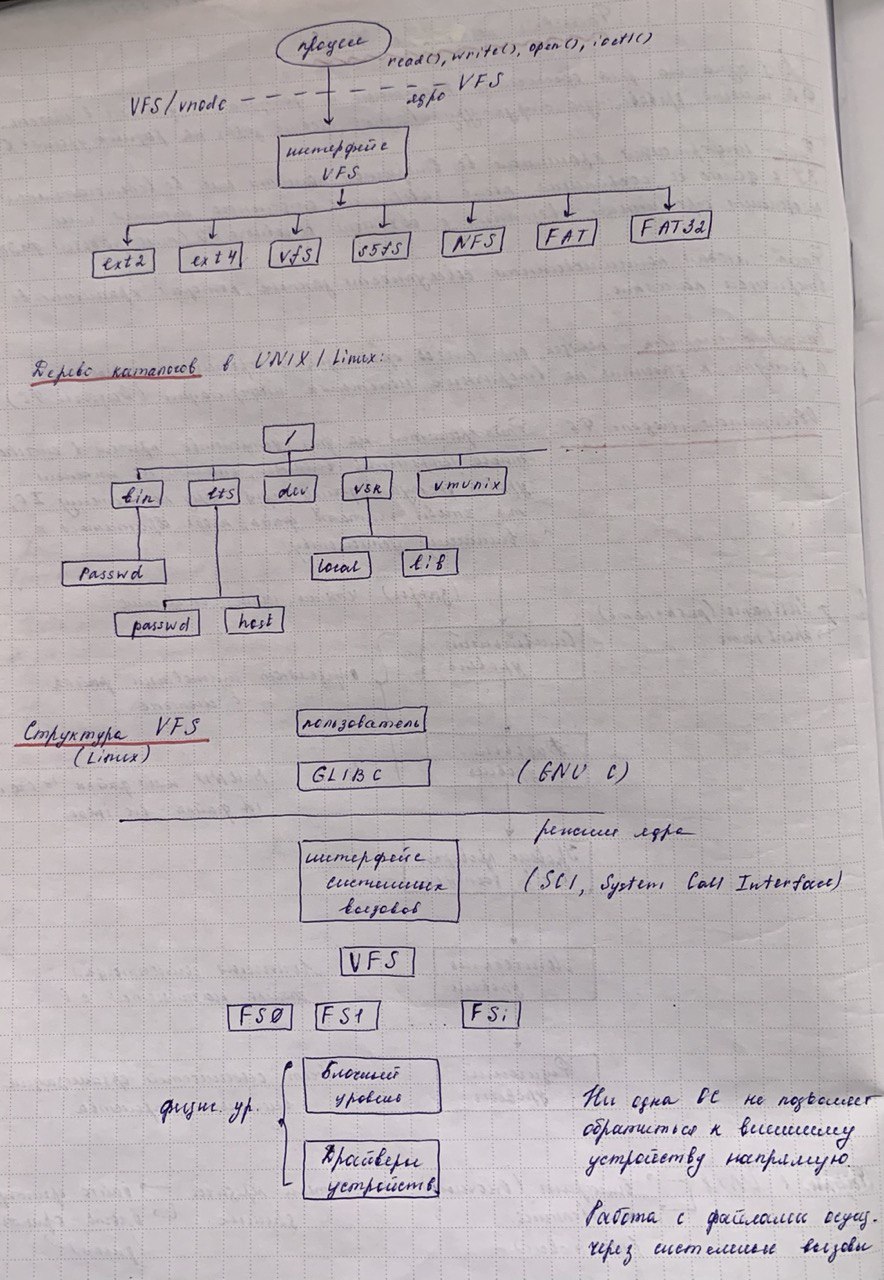 процесс
read(), write(), open(), ioctl()
VFS/vnode
ядро VFS
интерфейс
VFS
ext2
ext4
vfs
s5fs
NFS
FAT
FAT32
Дерево каталогов в UNIX/Linux:
/
bin
ets
dev
usr
vmunix
Passwd
local
lib
passwd
host
Структура VFS
(Linux)
пользователь
GLIBC
(GNU C)
режим ядра
интерфейс
системных
вызовов
(SCI, System Call Interface)
VFS
FS0
FS1
...
FSi
физич. ур.
Блочный
уровень
Драйверы
устройств
Ни одна ОС не позволяет
обратиться к внешнему
устройству напрямую
Работа с файлами осущ.
через системные вызовы